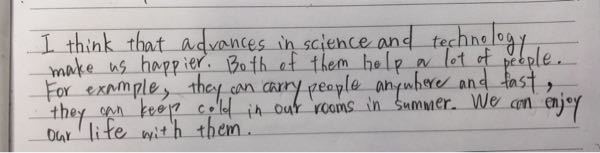 I think that advances in science and technology
make us happier. Both of them help a lot of people.
For example, they can carry people anywhere and fast,
they can keep cold in our rooms in summer. We can enjoy
our life with them.